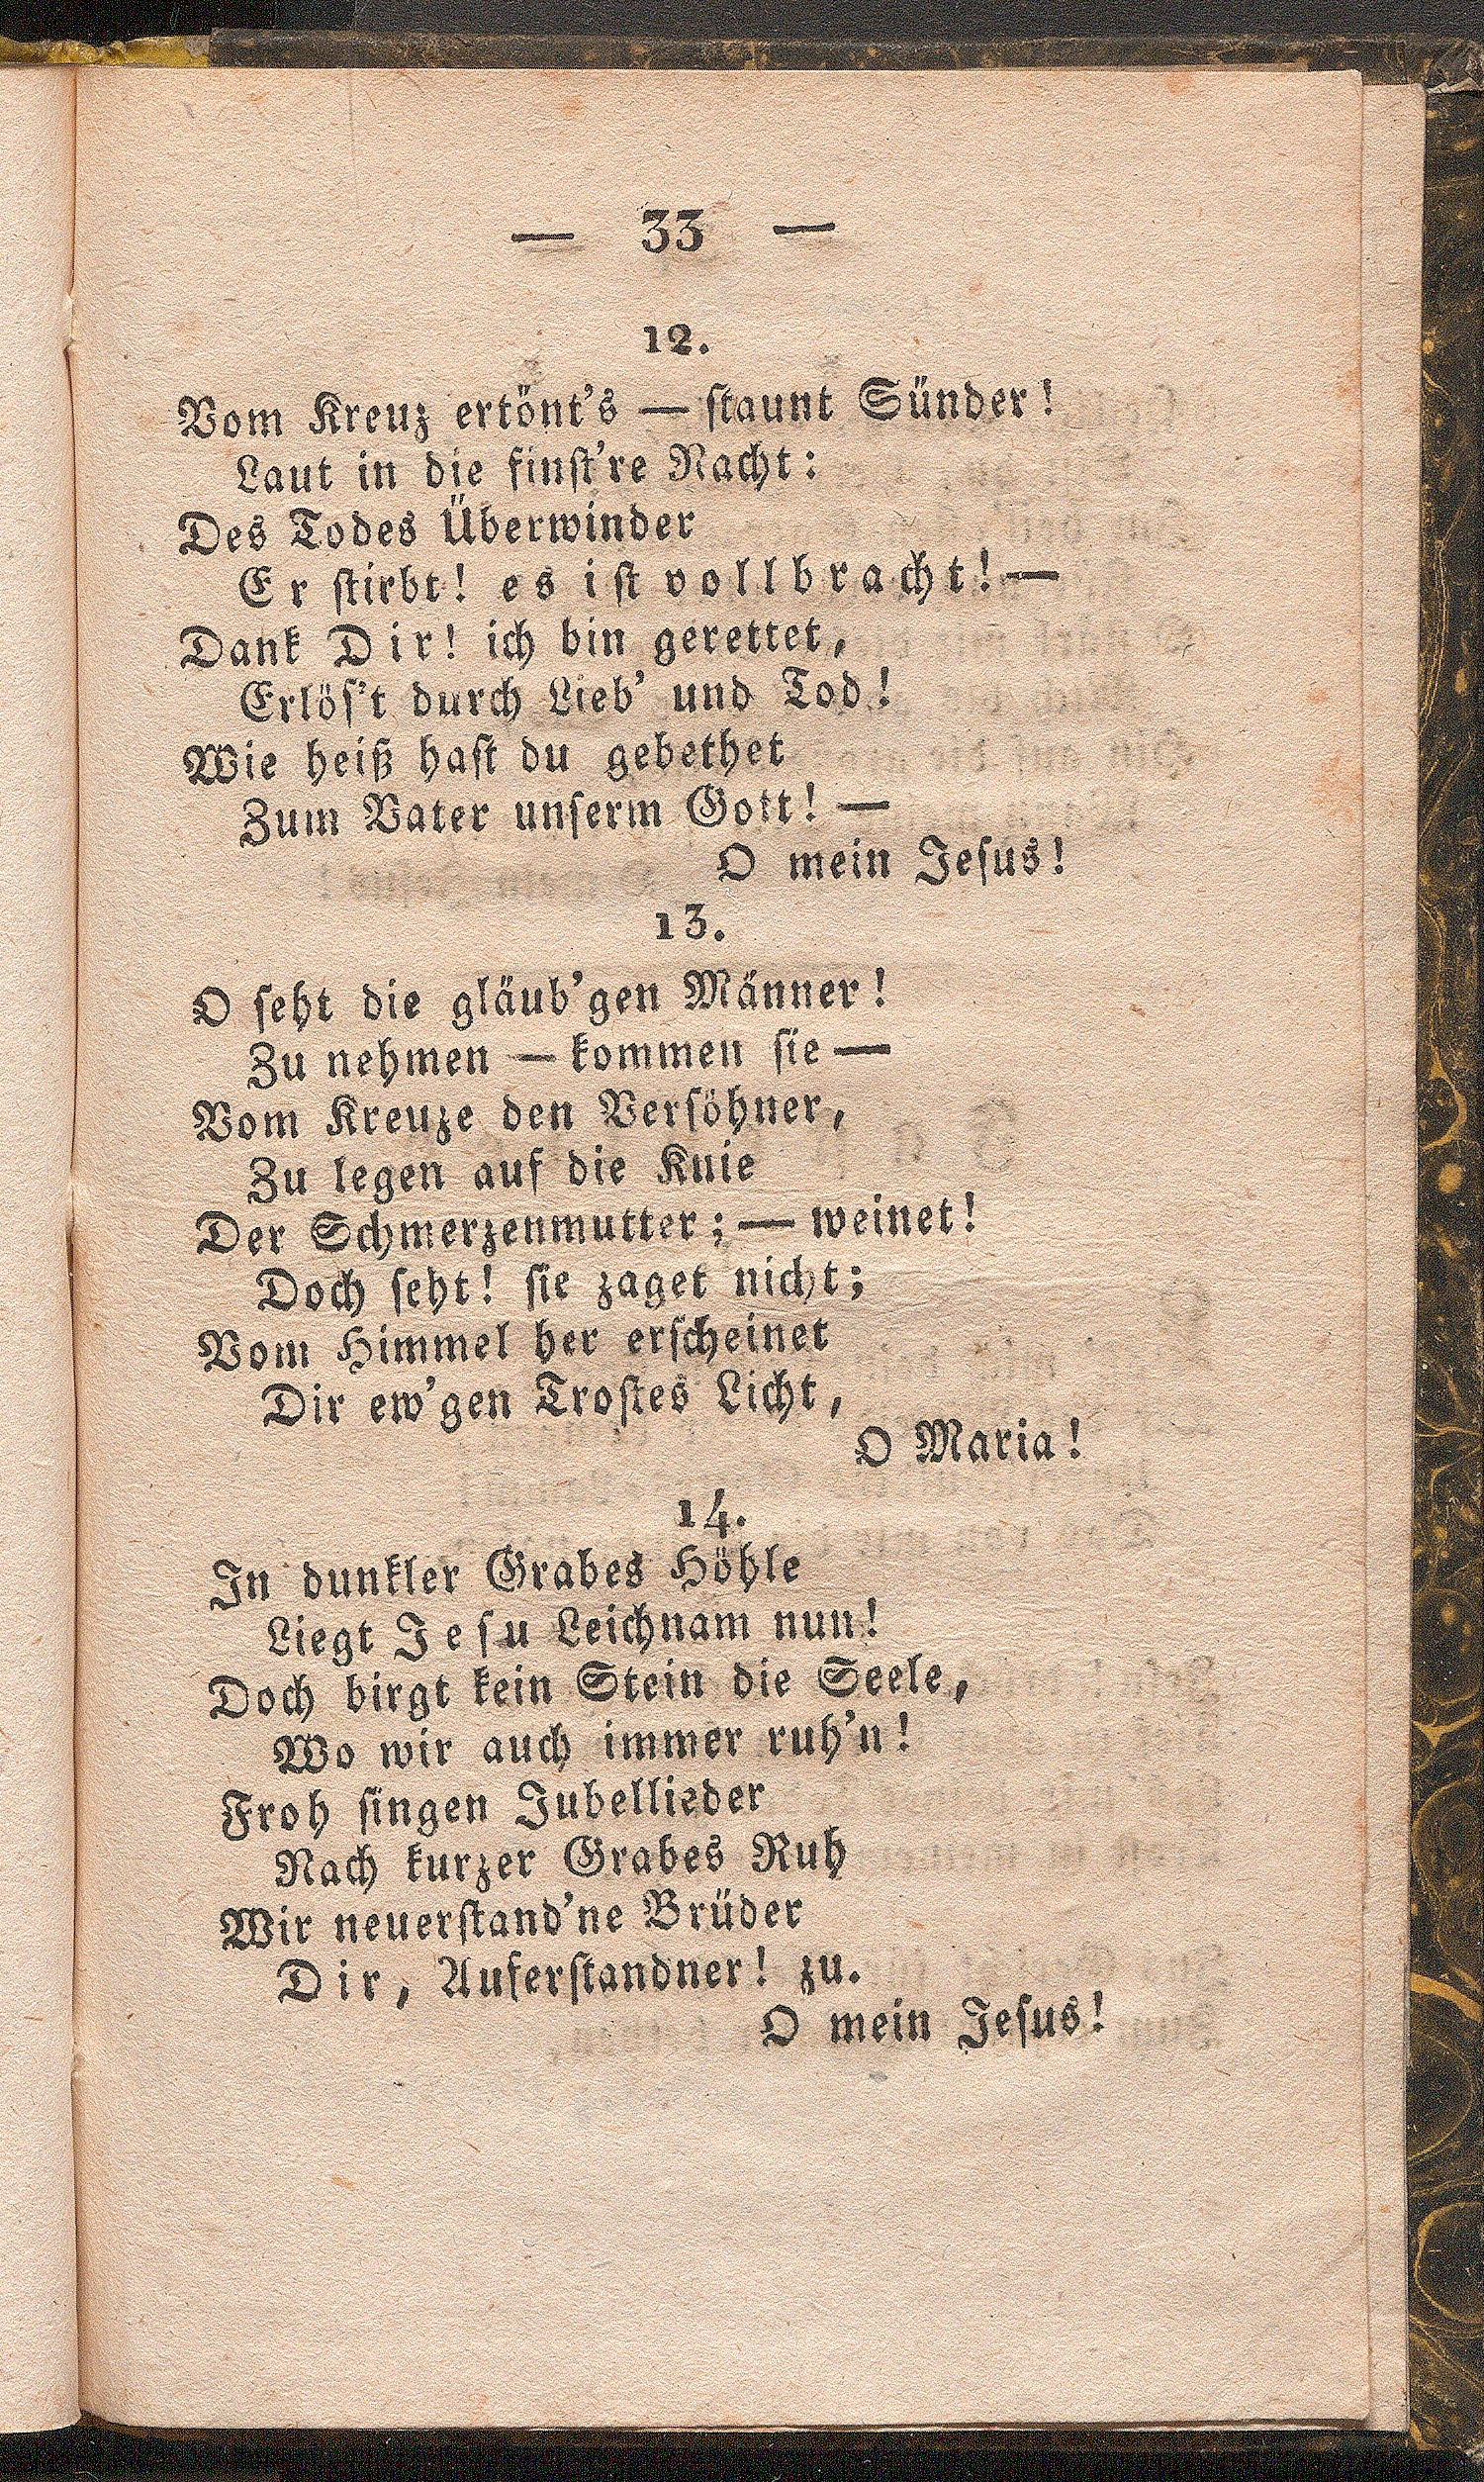 — 33 —
12.
Vom Kreuz ertönt's — staunt Sünder!
Laut in die finst're Nacht:
Des Todes Überwinder
Er stirbt! es ist vollbracht! —
Dank Dir! ich bin gerettet,
Erlös't durch Lieb' und Tod!
Wie heiß hast du gebethet
Zum Vater unserm Gott! —
O mein Jesus!
13.
O seht die gläub'gen Männer!
Zu nehmen — kommen sie —
Vom Kreuze den Versöhner,
Zu legen auf die Knie
Der Schmerzenmutter; — weinet!
Doch seht! sie zaget nicht;
Vom Himmel her erscheinet
Dir ew'gen Trostes Licht,
O Maria!
14.
In dunkler Grabes Höhle
Liegt Jesu Leichnam nun!
Doch birgt kein Stein die Seele,
Wo wir auch immer ruh'n!
Froh singen Jubellieder
Nach kurzer Grabes Ruh
Wir neuerstand'ne Brüder
Dir, Auferstandner! zu.
O mein Jesus!